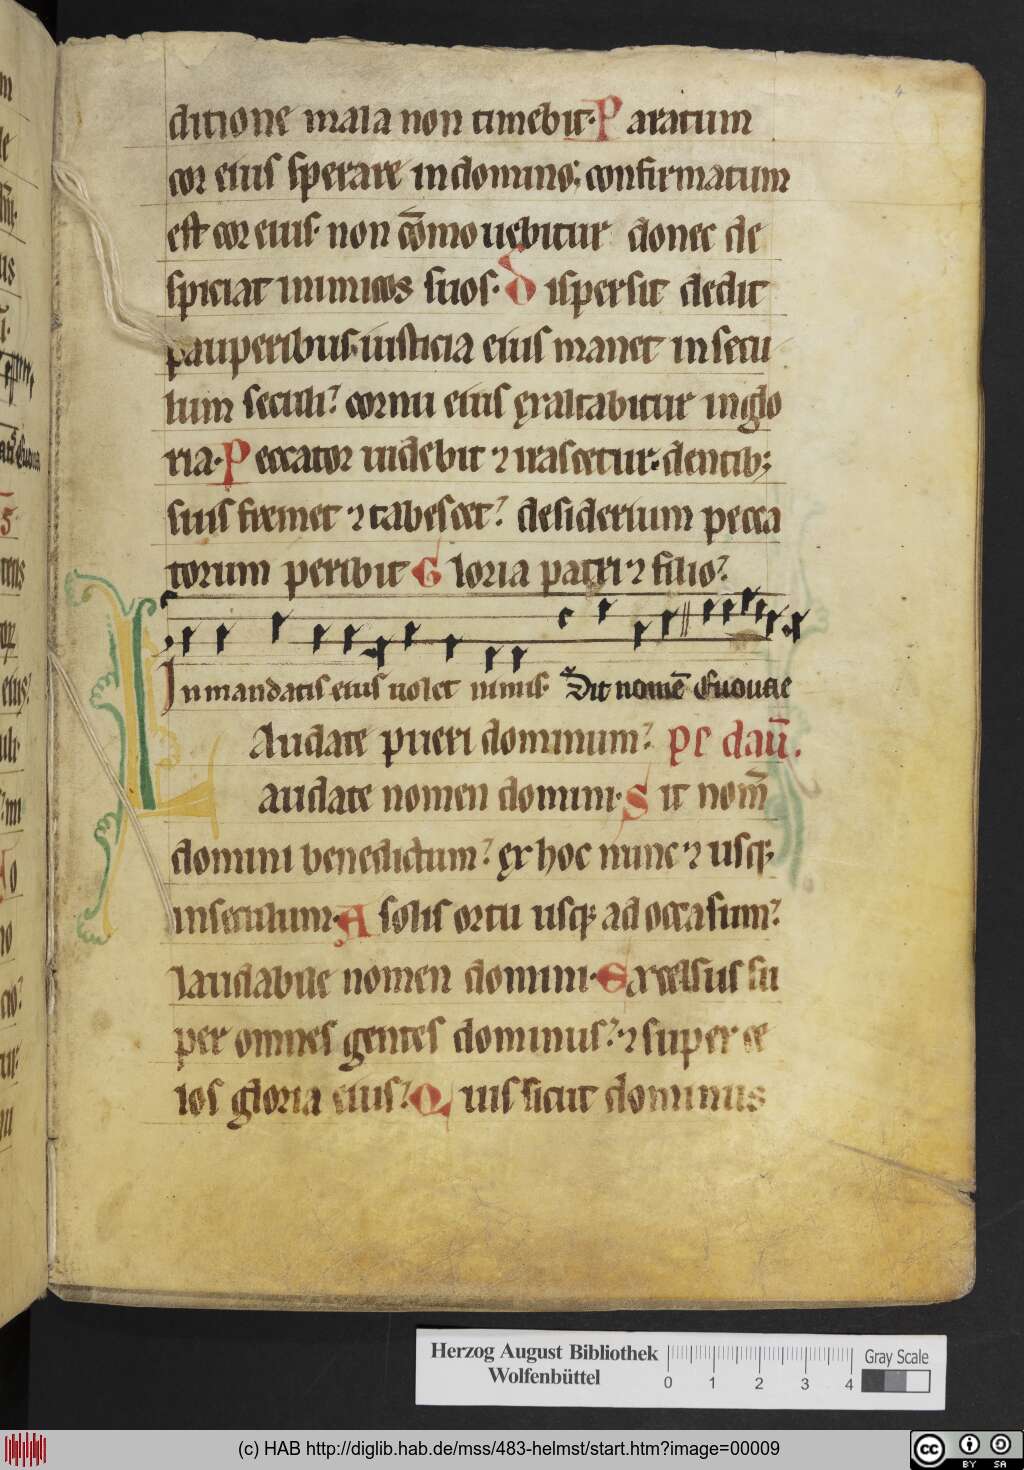 4
ditione mala non timebit· Paratum
cor eius sperare in domino; confirmatum
est cor eius· non cōmouebitur donec de
spiciat inimicos suos· Dispersit dedit
pauperibus·iusticia eius manet in secu
lum seculi? cornu eius exaltabitur in glo
ria· Peccator uidebit ⁊ irascetur·dentib;
suis fremet ⁊ tabescet? desiderium pecca
torum peribit Gloria patri ⁊ filio?
In mandatis eius uolet nimis· Sit nomē Euouae
Laudate pueri dominum? ps dauī.
audate nomen domini· Sit nom̄
domini benedictum? ex hoc nunc ⁊ usq;
in seculum· A solis ortu usq; ad occasum?
laudabile nomen domini· Excelsus su
per omnes gentes dominus? ⁊ super ce
los gloria eius? Quis sicut dominus
Herzog August Bibliothek
Wolfenbüttel
0 1 2 3 4
Gray Scale
(c) HAB http://diglib.hab.de/mss/483-helmst/start.htm?image=00009
cc BY SA